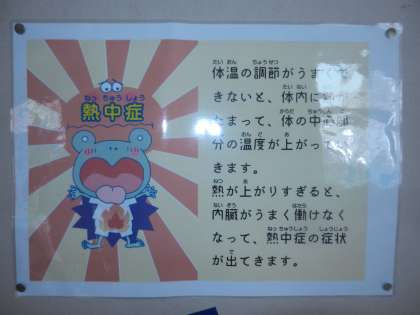 熱中症
体温の調節がうまくで
きないと、体内に
たまって、体の中
分の温度が上がって
きます。
熱が上がりすぎると、
内臓がうまく働けなく
なって、熱中症の症状
が出てきます。